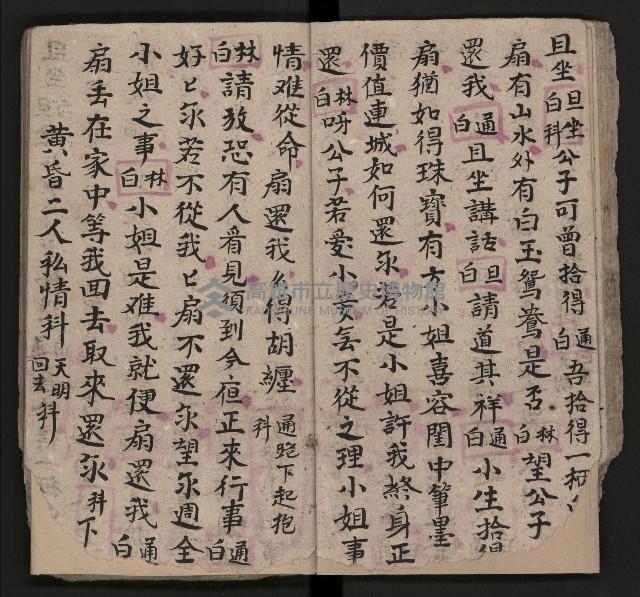 且坐 旦坐白科 公子可曾拾得 通白 吾拾得一柄
扇有山水外有白玉鴛鴦是否 林白 望公子
還我 通白 且坐講話 旦白 請道其祥 通白 小生拾得
扇猶如得珠寶有才小姐喜容閨中筆墨
價值連城如何還尔若是小姐許我終身正
還 林白 呀公子若愛小妾無不從之理小姐事
情难從命扇還我么得胡纏 通跪下起抱科
林白 請放恐有人看見須到今宿正來行事 通白
好匕尔若不從我匕扇不還尔望尔週全
小姐之事 林白 小姐是难我就便扇還我 通白
扇丢在家中等我回去取來還尔 科下
黄昏二人私情科 天明回去科
高雄市立歷史博物館
KAOHSIUNG MUSEUM OF HISTORY